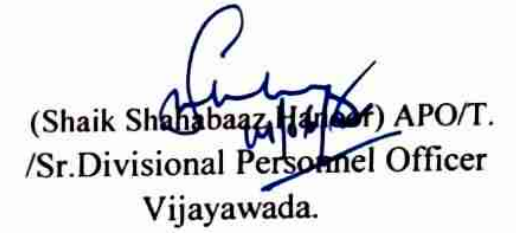 (Shaik Shahabaaz Hanoor) APO/T.
/Sr.Divisional Personnel Officer
Vijayawada.